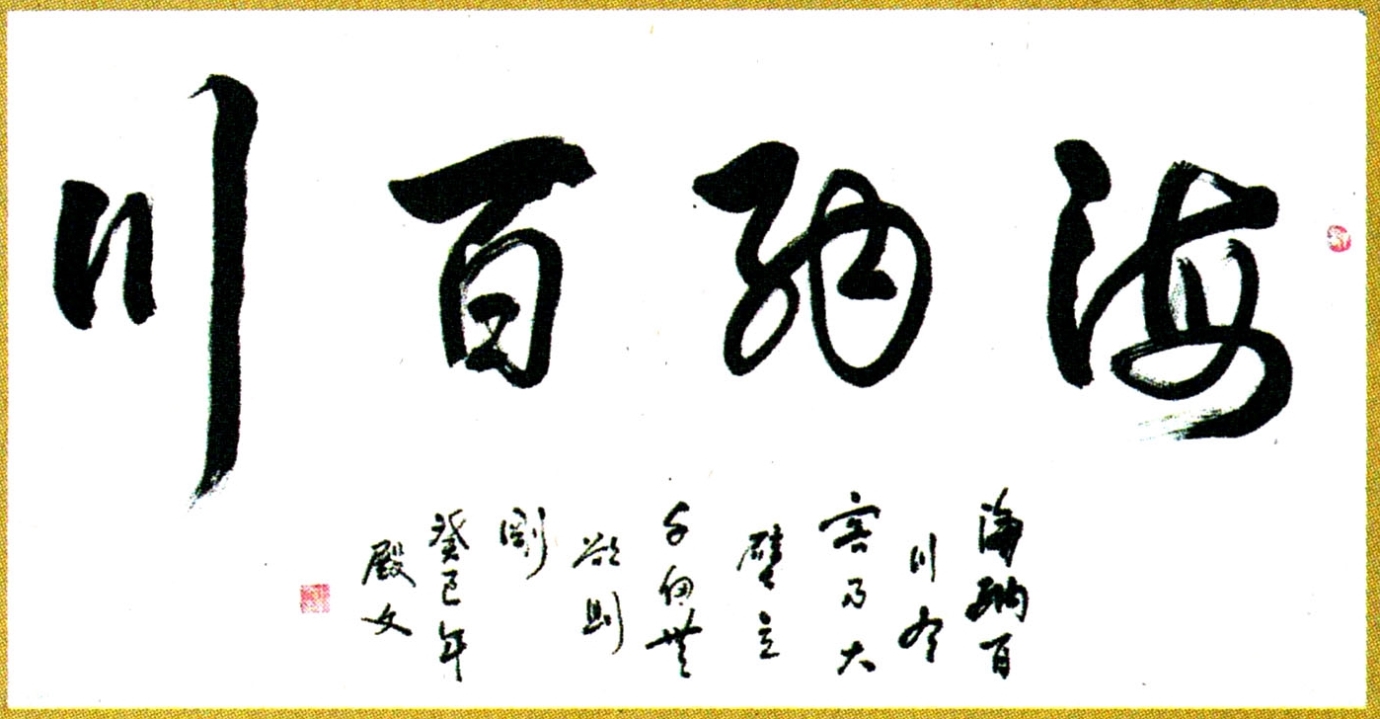 海納百川
海納百
川有
容乃大
壁立
千仞無
欲則
剛
癸巳年
殿文